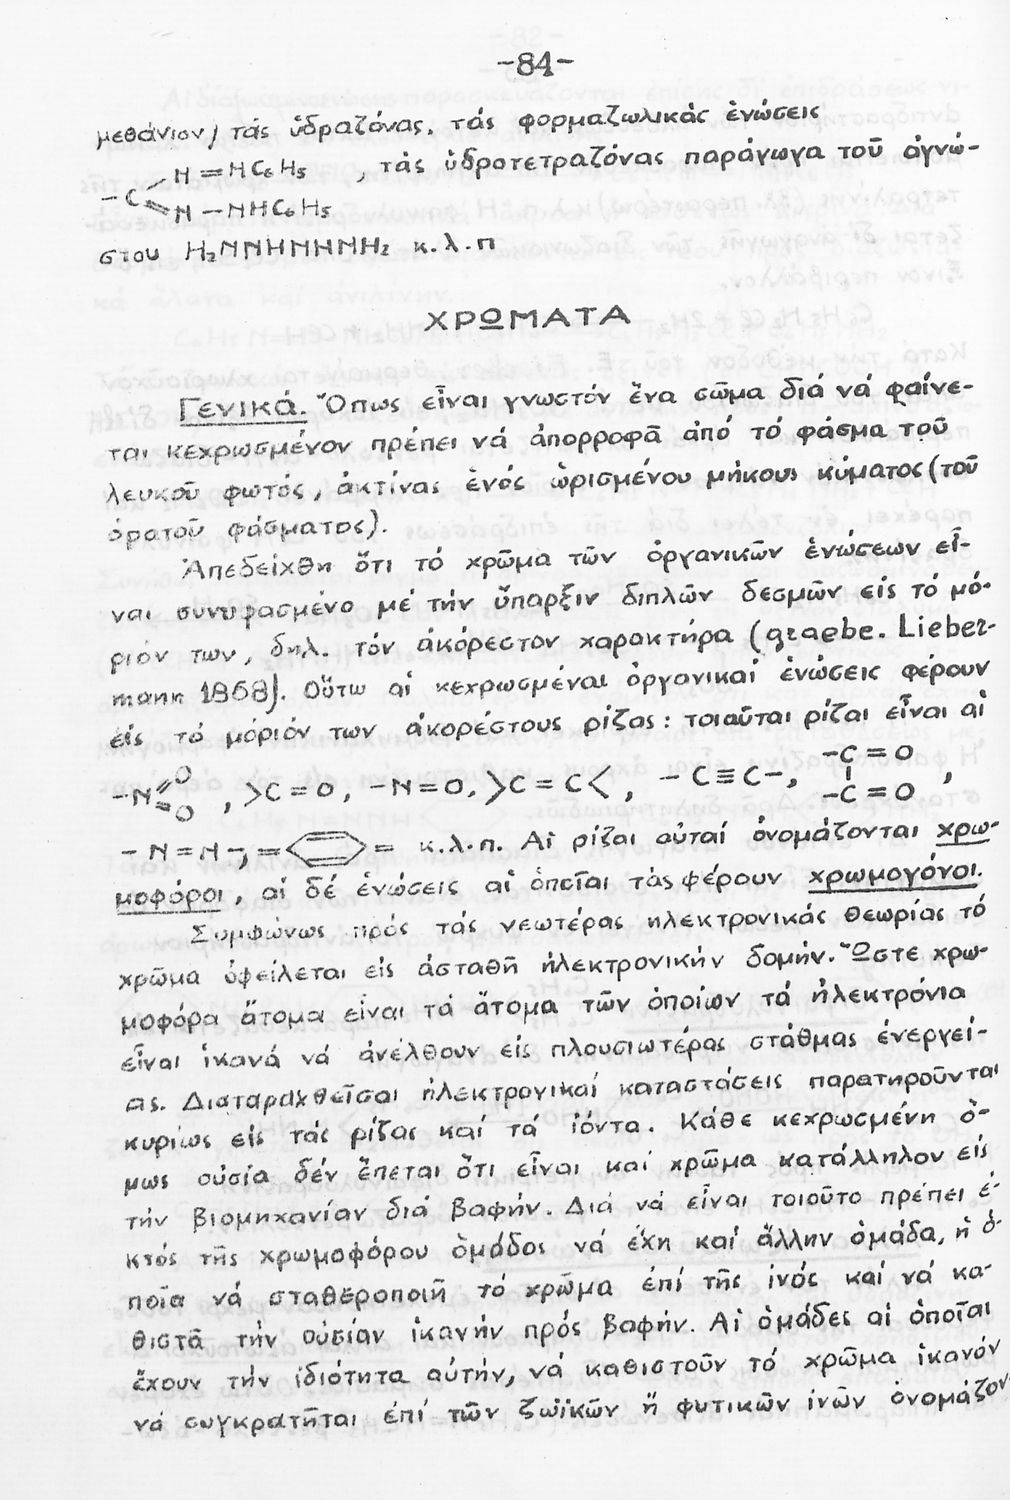 -84-
μεθάνιον) τάς ὑδραζόνας, τάς φορμαζωλικάς ἑνώσεις
-C N=NC₆H₅ , τάς ὑδροτετραζόνας παράγωγα τοῦ ἀγνώ-
N-NHC₆H₅
στου H₂NNHNHNH₂ κ.λ.π
ΧΡΩΜΑΤΑ
Γενικά. Ὅπως εἶναι γνωστόν ἕνα σῶμα διά νά φαίνε-
ται κεχρωσμένον πρέπει νά ἀπορροφᾶ ἀπό τό φάσμα τοῦ
λευκοῦ φωτός, ἀκτίνας ἑνός ὡρισμένου μήκους κύματος (τοῦ
ὁρατοῦ φάσματος).
Ἀπεδείχθη ὅτι τό χρῶμα τῶν ὀργανικῶν ἑνώσεων εἶ-
ναι συνυφασμένο μέ τήν ὕπαρξιν διπλῶν δεσμῶν εἰς τό μό-
ριόν των, δηλ. τόν ἀκόρεστον χαρακτήρα (graebe. Lieber-
mann 1868). Οὕτω αἱ κεχρωσμέναι ὀργανικαί ἑνώσεις φέρουν
εἰς τό μόριόν των ἀκορέστους ρίζας: τοιαῦται ρίζαι εἶναι αἱ
-N=O O , >C=O, -N=O, >C=C<, -C≡C-, -C=O -C=O ,
-N=N-, = = κ.λ.π. Αἱ ρίζαι αὐταί ὀνομάζονται χρω-
μοφόροι, αἱ δέ ἑνώσεις αἱ ὁποῖαι τάς φέρουν χρωμογόνοι.
Συμφώνως πρός τάς νεωτέρας ηλεκτρονικάς θεωρίας τό
χρῶμα ὀφείλεται εἰς ἀσταθῆ ἠλεκτρονικήν δομήν. Ὥστε χρω-
μοφόρα ἄτομα εἶναι τά ἄτομα τῶν ὁποίων τά ἠλεκτρόνια
εἶναι ἱκανά νά ἀνέλθουν εἰς πλουσιωτέρας στάθμας ἐνεργεί-
ας. Διαταραχθεῖσαι ἠλεκτρονικαί καταστάσεις παρατηροῦνται
κυρίως εἰς τάς ρίζας καί τά ἰόντα. Κάθε κεχρωσμένη ὅ-
μως οὐσία δέν ἕπεται ὅτι εἶναι καί χρῶμα κατάλληλον εἰς
τήν βιομηχανίαν διά βαφήν. Διά νά εἶναι τοιοῦτο πρέπει ἐ-
κτός τῆς χρωμοφόρου ὁμάδος νά ἔχη καί ἄλλην ὁμάδα, ἡ ὁ-
ποῖα νά σταθεροποιῆ τό χρῶμα ἐπί τῆς ἰνός καί νά κα-
θιστᾶ τήν οὐσίαν ἱκανήν πρός βαφήν. Αἱ ὁμάδες αἱ ὁποῖαι
ἔχουν τήν ἰδιότητα αὐτήν, νά καθιστοῦν τό χρῶμα ἱκανόν
νά συγκρατῆται ἐπί τῶν ζωϊκῶν ἤ φυτικῶν ἰνῶν ὀνομάζον